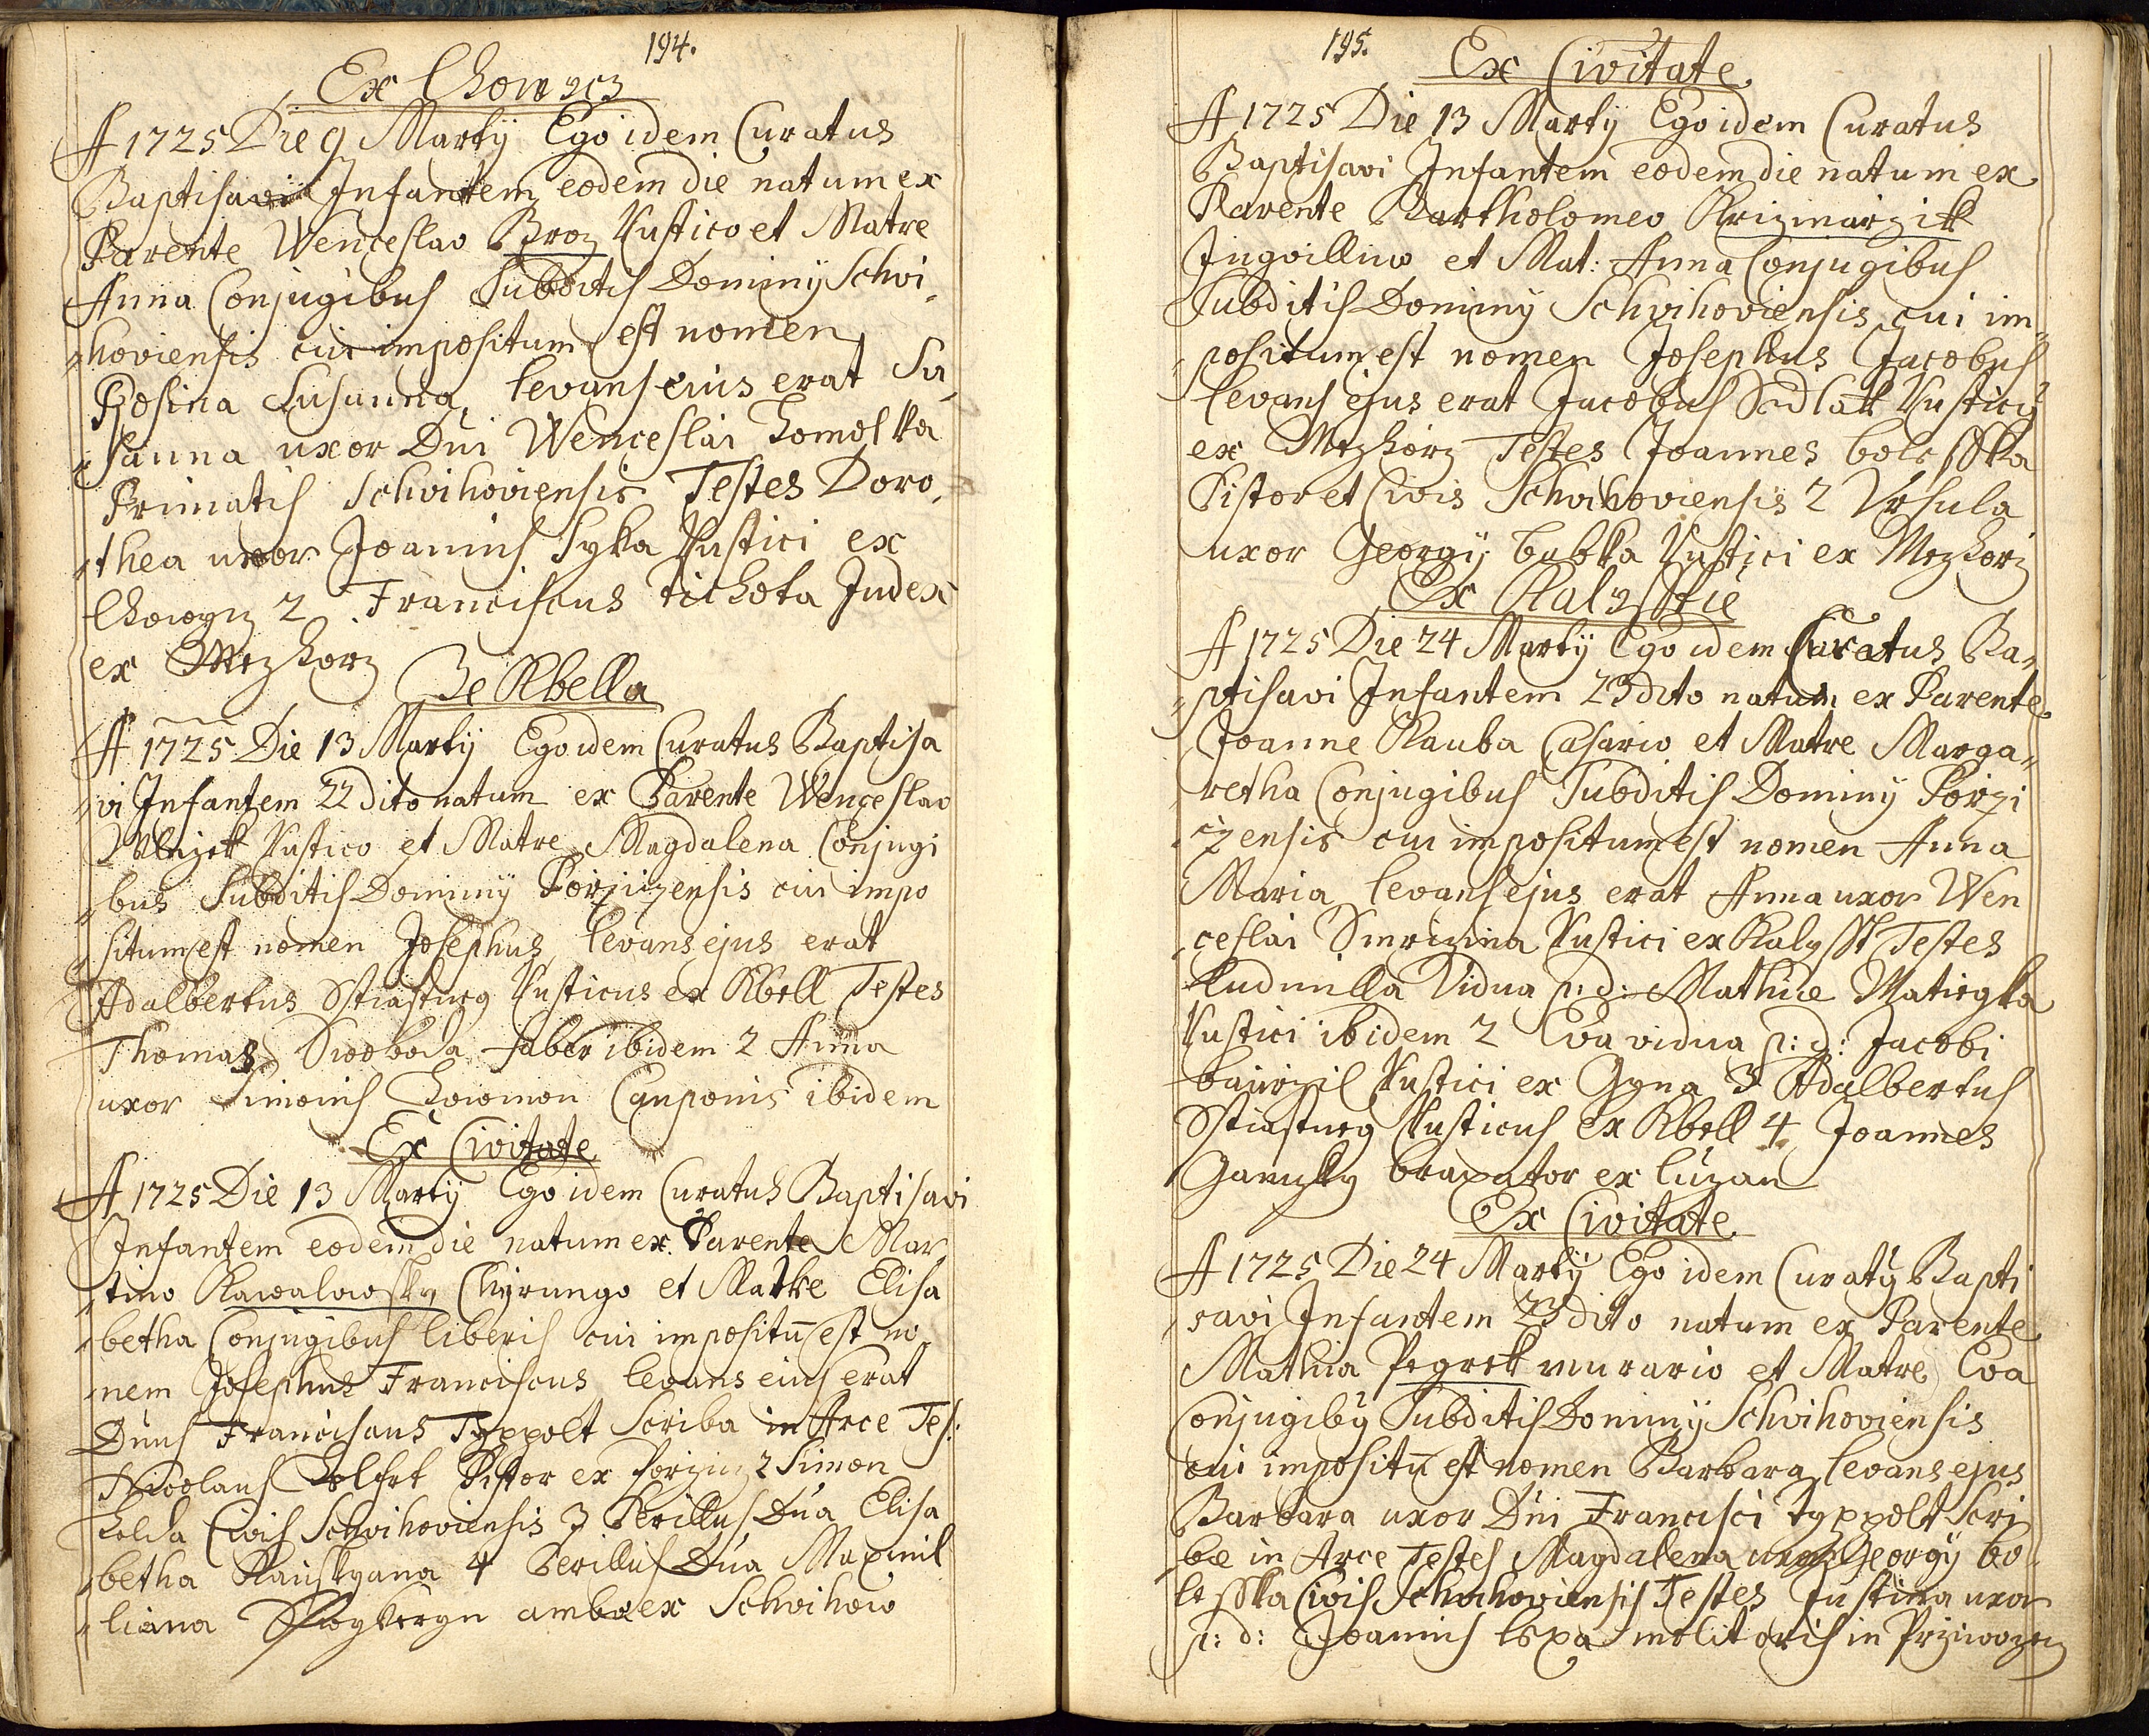 194.
Ex Chowycz
A 1725 Die 9 Martÿ Ego idem Curatus
Baptisavi Infantem eodem die natum ex
Parente Wenceslao Broz Rustico et Matre
Anna Conjugibus Subditis Dominÿ Schvi,
„hoviensis cui impositum est nomen
Rosina Susanna, levans eius erat Su,
„sanna uxor Dni Wenceslai Homolka
Primatis Schvihoviensis Testes Doro,
„thea uxor Joannis Syka Rustici ex
Chowycz 2 Franciscus Tichota Judex
ex Mezhorz
Ze Kbella
A 1725 Die 13 Martÿ Ego idem Curatus Baptisa
„vi Infantem 22 dito natum ex Parente Wenceslao
Rustico et Matre Magdalena Conjugi
„bus Subditis Dominÿ Porziczensis cui impo
„situm est nomen Josephus levans ejus erat
Adalbertus Sstiastneg Rusticus ex Kbell Testes
Thomas Swoboda faber ibidem 2 Anna
uxor Simonis Chowmon Cauponis ibidem
Ex Civitate
A 1725 Die 13 Martÿ Ego idem Curatus Baptisavi
Infantem eodem die natum ex Parente Mar
„tino Kawalowsky Chyrurgo et Matre Elisa
„betha Conjugibus liberis cui impositū est no,
„nem Josephus Franciscus levans eius erat
Dnus Franciscus Typpolt Scriba in Arce Tes:
Nicolaus Pistor ex Porzicz 2 Simon
Civis Schvihoviensis 3 Perillus Dna Elisa
„betha 4 Perillus Dna Maximil
„liana ambae ex Schvihow
195.
Ex Civitate
A 1725 Die 13 Martÿ Ego idem Curatus
Baptisavi Infantem eodem die natum ex
Parente Bartholomeo Krizmarzik
Inqvillino et Mat: Anna Conjugibus
Subditis Dominÿ Schvihoviensis cui im„
„positum est nomen Josephus Jacobus
levans ejus erat Jacobus Sedlak Rusticÿ
ex Mezhorz Testes Joannes bolesska
Pistor et Civis Schvihoviensis 2 Ursula
uxor Georgÿ bubka Rustici ex Mezhorz
Ex Kalysstie
A 1725 Die 24 Martÿ Ego idem Curatus Ba„
„ptisavi Infantem 23 dito natum ex Parente
Joanne Kauba Casario et Matre Marga„
„retha Conjugibus Subditis Dominÿ Porzi
„czensis cui impositum est nomen Anna
Maria levans ejus erat Anna uxor Wen
„ceslai Smrzina Rustici ex Kalysst Testes
Ludmilla Vidua p: d: Mathiae Matiegka
Rustici ibidem 2 Eva vidua p: d: Jacobi
Rustici ex Gyna 3 Adalbertus
Sstiastneg Rusticus ex Kbell 4 Joannes
braxator ex Luzan
Ex Civitate
A 1725 Die 24 Martÿ Ego idem Curatÿ Bapti
„savi Infantem 23 dito natum ex Parente
Mathia Pegrek murario et Matre Eva
Conjugibÿ Subditis Dominÿ Schvihoviensis
cui impositū est nomen Barbara, levans ejus
Barbara uxor Dni Francisci Typpolt Scri
„bae in Arce Testes Magdalena uxor Georgÿ bo
„lesska Civis Schvihoviensis Testes Justina uxor
p: d: Joannis molitoris in Przinwozcz